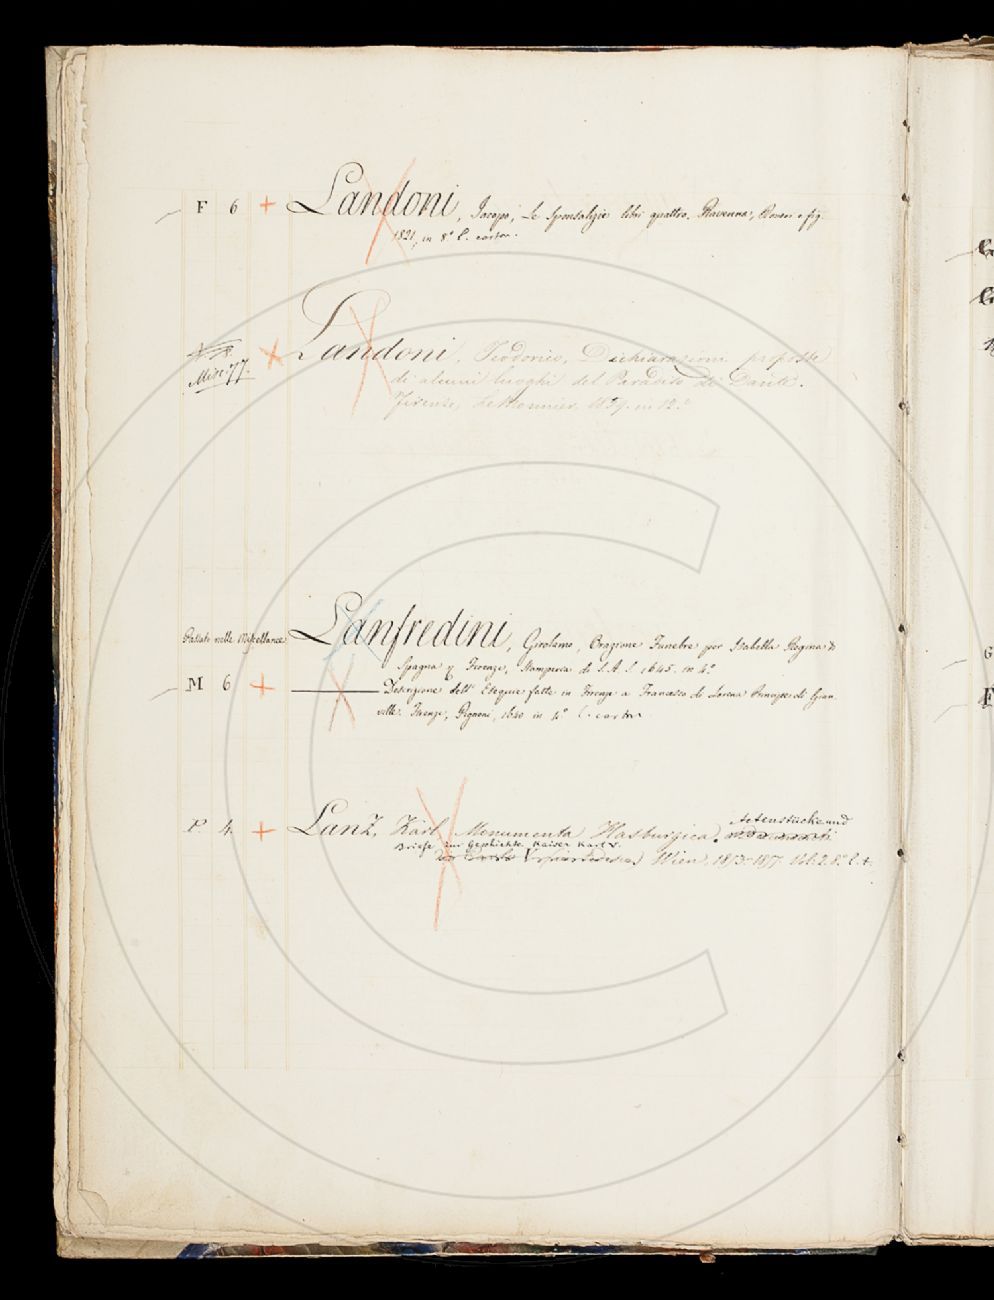 F 6 + Landoni, Jacopo, Le Sponsalizie libri quattro. Ravenna, Roveri e fig.
1821, in 8° l. carton.
Landoni, Teodorico, Dichiarazioni proposte
Misc. 77.
di alcuni luoghi del Paradiso di Dante.
Firenze, Le Monnier, 1859. in 12.°
Passato nelle Miscellanee Lanfredini, Girolamo, Orazione Funebre per Isabella Regina di
Spagna Firenze, Stamperia di S.A.S. 1645. in 4°
M 6 + Descrizione dell' Esequie fatte in Firenze a Francesco di Lorena Principe di Gian
ville. Firenze, Pignoni, 1640 in 4° l. carton.
P. 4. + Lanz, Karl, Monumenta Hasburgica. Actenstücke und
Briefe zur Geschichte Kaiser Karl V.
Wien, 1853-1857. Vol. 2. 8.° l. +.